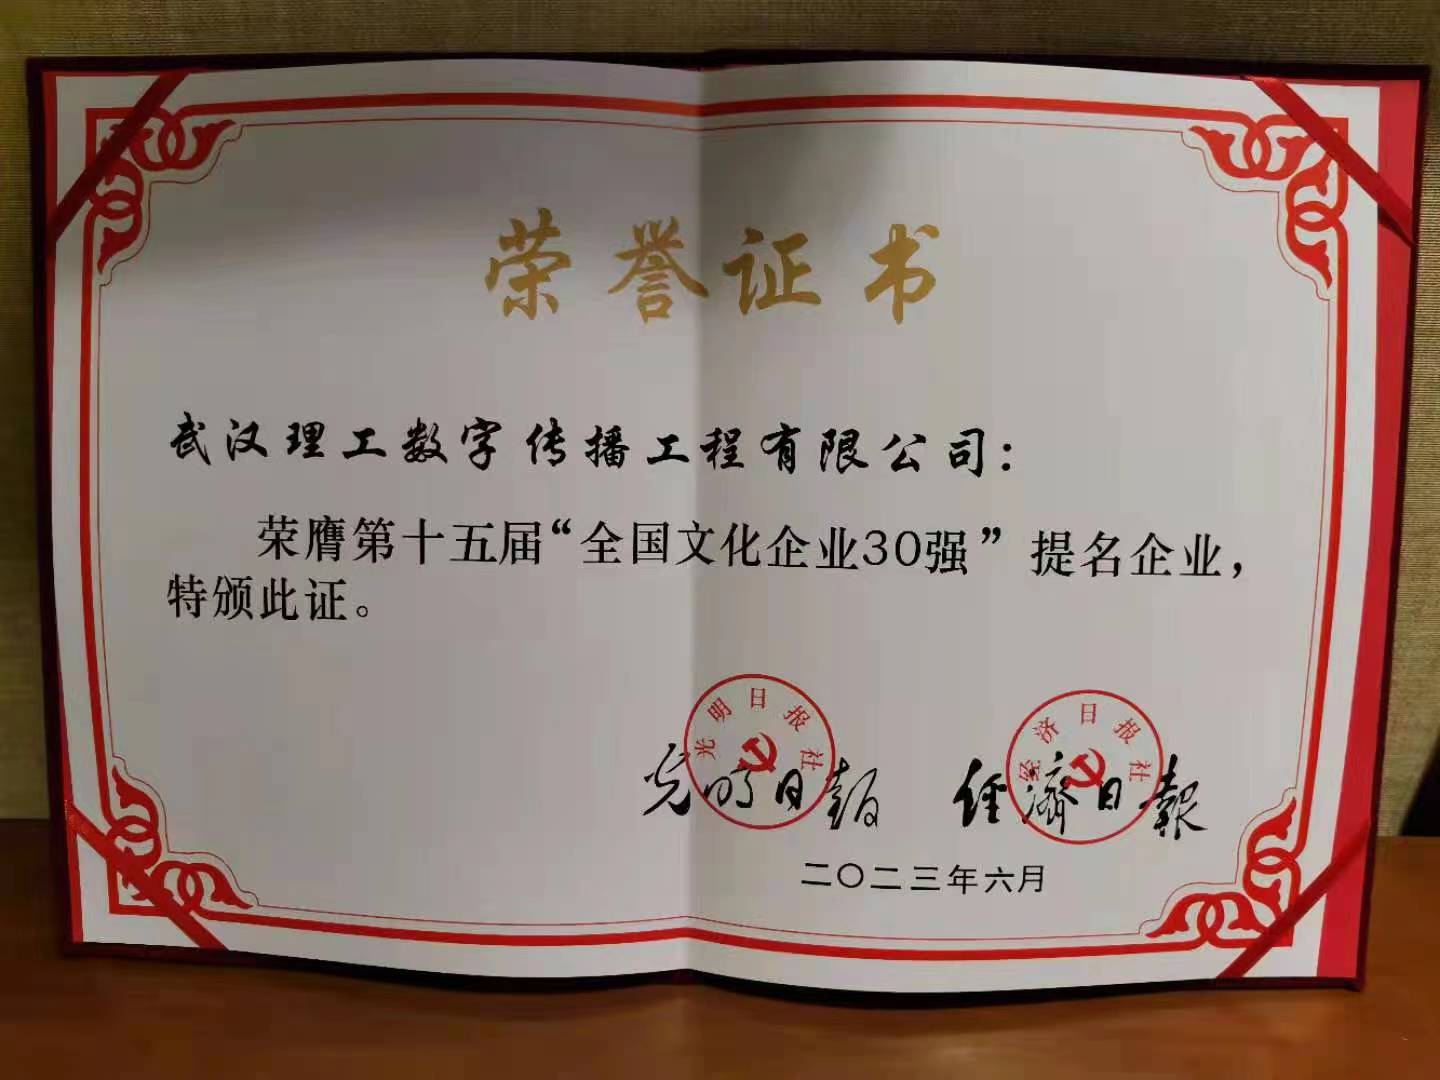 荣誉证书
武汉理工数字传播工程有限公司：
荣膺第十五届“全国文化企业30强”提名企业，
特颁此证。
光明日报社
经济日报社
光明日报 经濟日報
二〇二三年六月